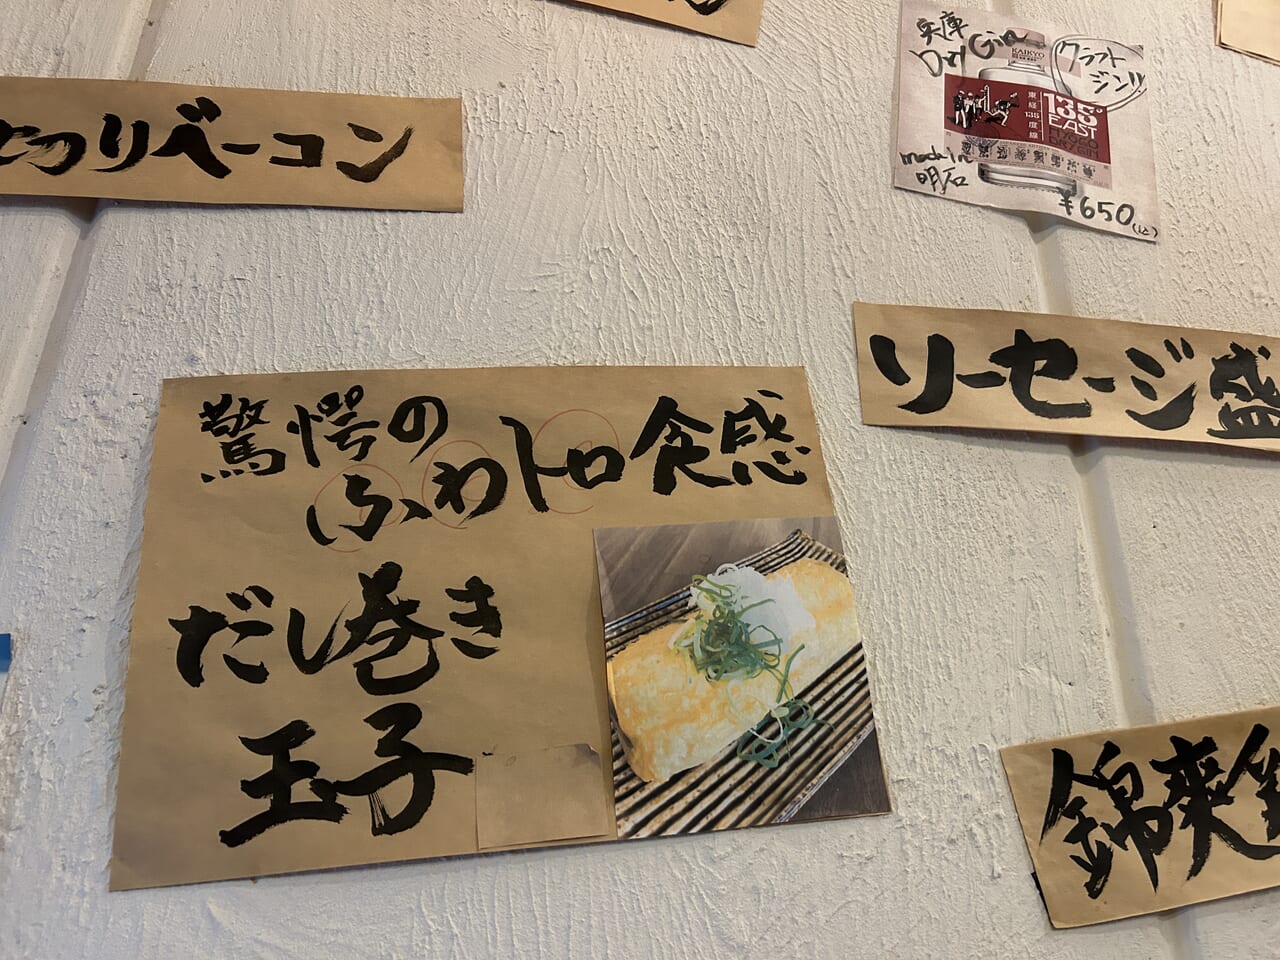 つりベーコン
兵庫
Dry Gin
クラフト
ジン!!
KAIKYO
東経135度線
135°
EAST
HYOGO
DRY GIN
made in
明石
¥650(込)
ソーセージ盛
驚愕の
ふわトロ食感
だし巻き
玉子
錦爽